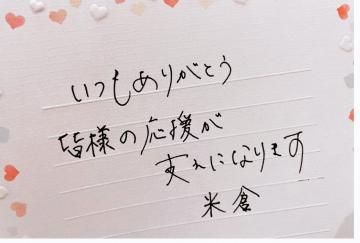 いつもありがとう
皆様の応援が
支えになります
米倉